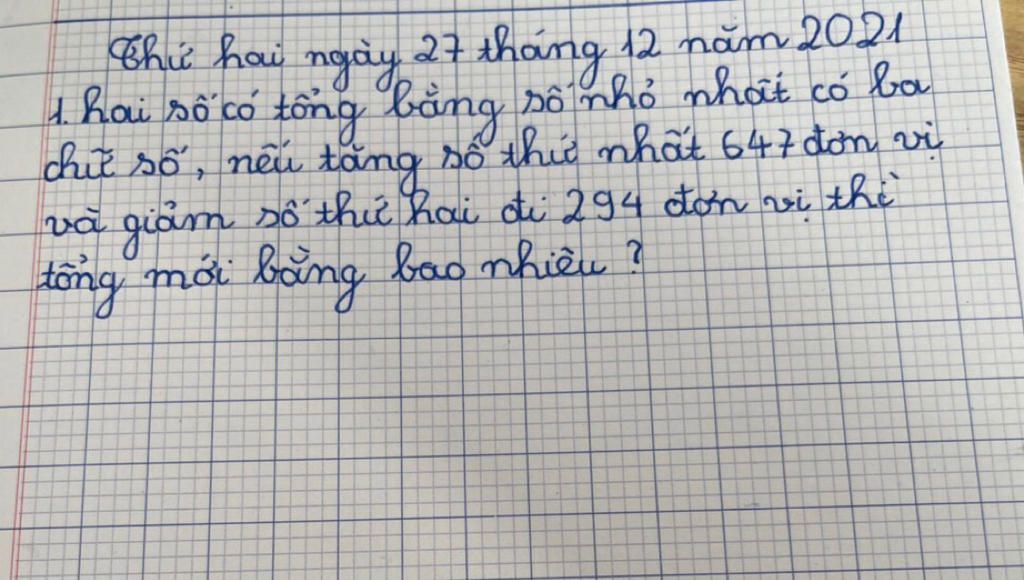 Thứ hai ngày 27 tháng 12 năm 2021
1. hai số có tổng bằng số nhỏ nhất có ba
chữ số, nếu tăng số thứ nhất 647 đơn vị
và giảm số thứ hai đi 294 đơn vị thì
tổng mới bằng bao nhiêu?